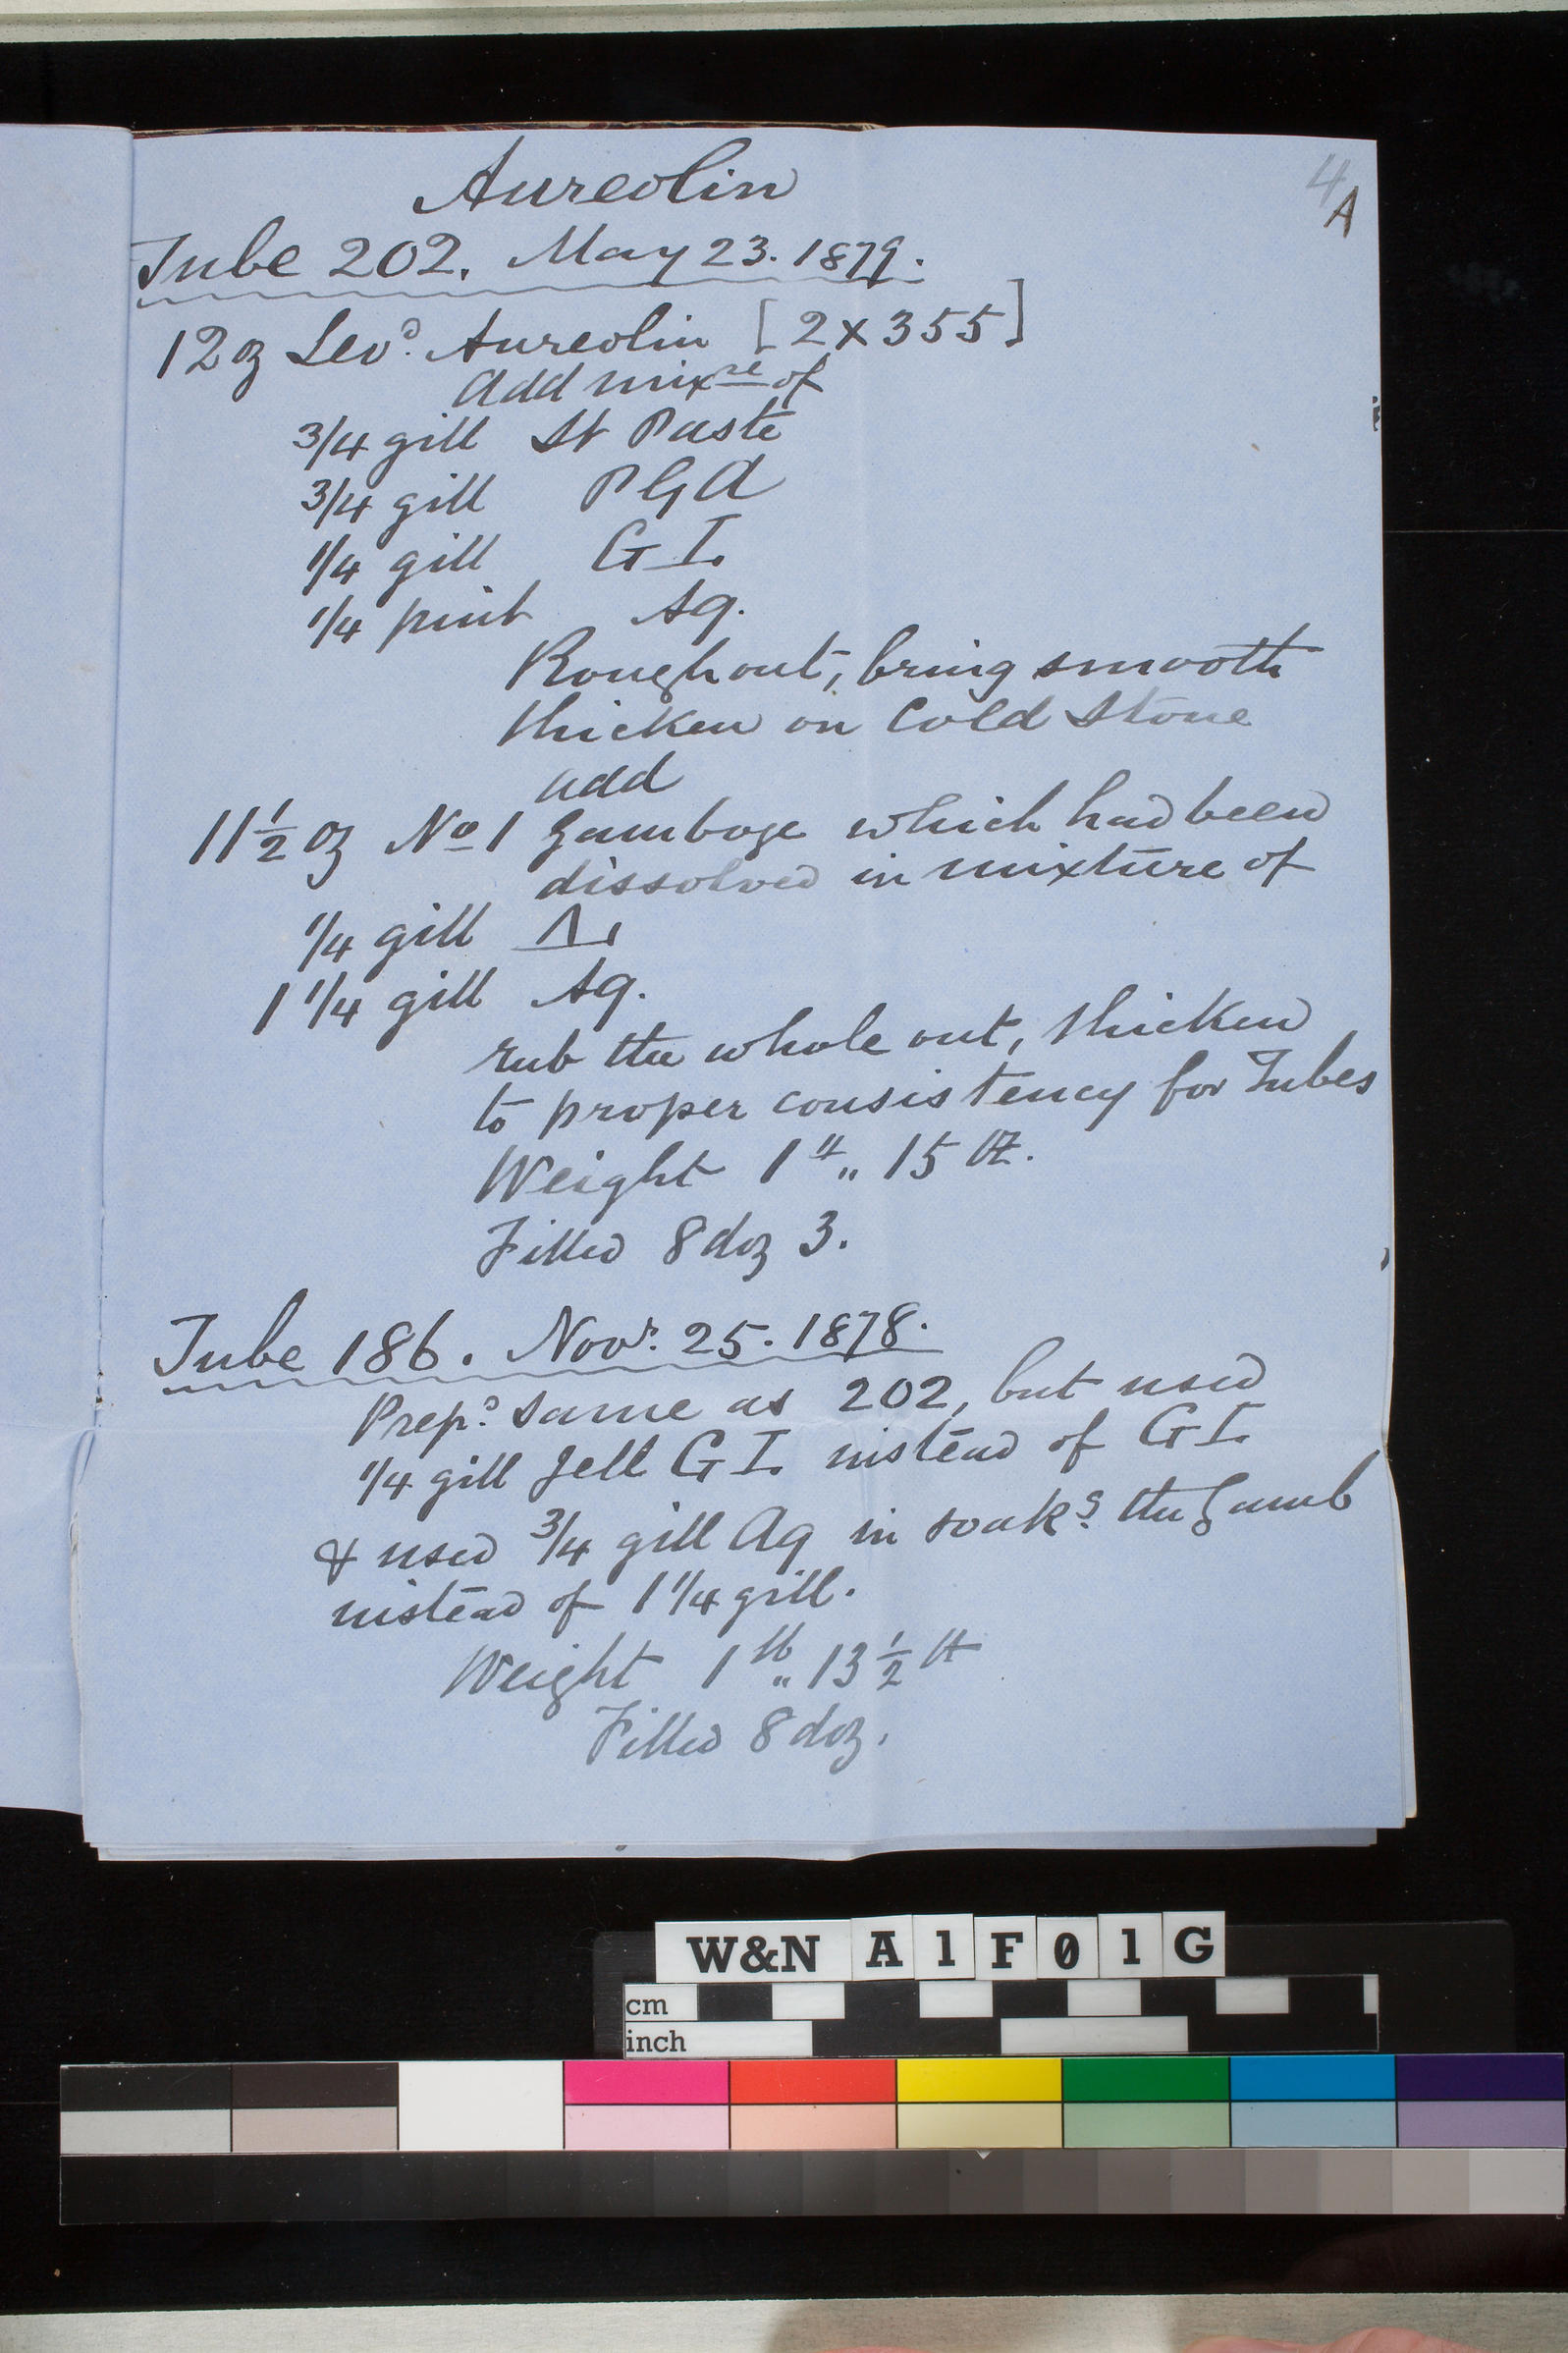 4
A
Aureolin
Tube 202. May 23. 1879.
12 oz Levd. Aureolin [2 x 355]
Add mixre of
3/4 gill St Paste
3/4 gill PGA
1/4 gill GI.
1/4 pint Aq.
Rough out, bring smooth
thicken on Cold Stone
add
11 1/2 oz No 1 Gamboge which had been
dissolved in mixture of
1/4 gill
1 1/4 gill Aq.
rub the whole out, thicken
to proper consistency for Tubes
Weight 1 15
Filled 8 doz 3.
Tube 186. Novr. 25. 1878.
Prepd. same as 202, but used
1/4 gill Jell GI. instead of GI.
& used 3/4 gill Aq in soakg. the Gamb
instead of 1 1/4 gill.
Weight 1 lb 13 1/2
Filled 8 doz.
W&N A1F01G
cm
inch